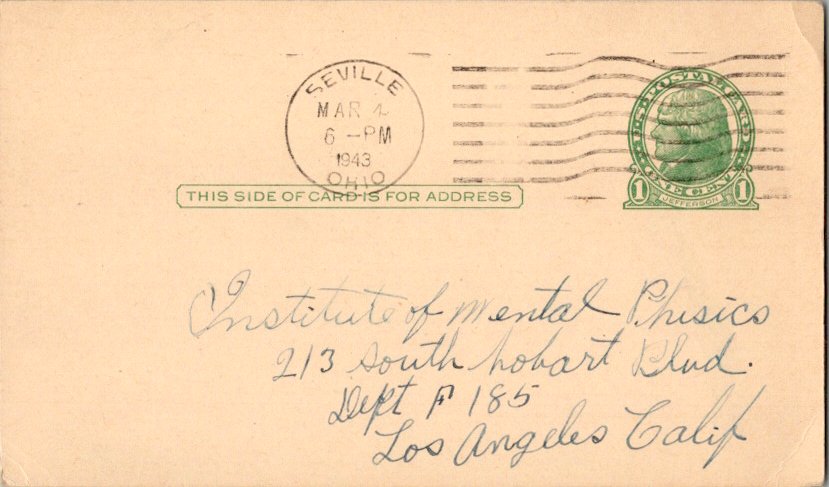 SEVILLE
MAR 4
6 - PM
1943
OHIO
U.S. POSTAL CARD
ONE CENT
1 JEFFERSON 1
THIS SIDE OF CARD IS FOR ADDRESS
Institute of Mental Phisics
213 South hobart Blvd.
Dept F 185
Los Angeles Calif